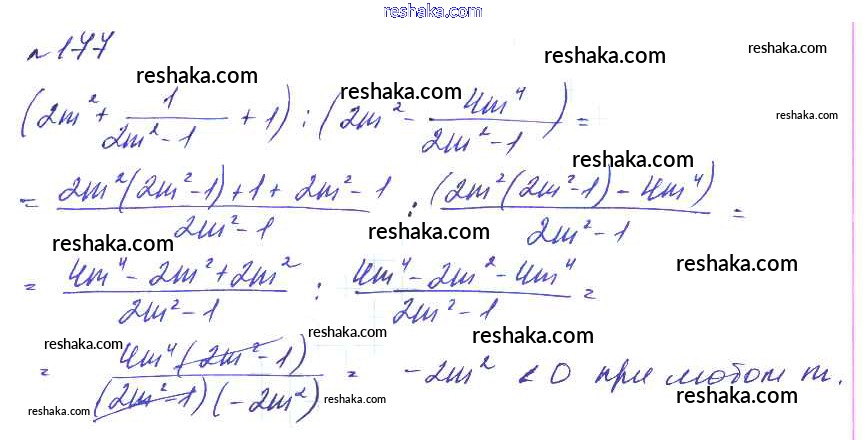 reshaka.com
№177
reshaka.com reshaka.com
reshaka.com reshaka.com
(2m² + 1/(2m² - 1) + 1) : (2m² - 4m⁴/(2m² - 1)) =
reshaka.com
reshaka.com
= (2m²(2m² - 1) + 1 + 2m² - 1)/(2m² - 1) : (2m²(2m² - 1) - 4m⁴)/(2m² - 1) =
reshaka.com reshaka.com
reshaka.com
= (4m⁴ - 2m² + 2m²)/(2m² - 1) : (4m⁴ - 2m² - 4m⁴)/(2m² - 1) =
reshaka.com reshaka.com reshaka.com
= 4m⁴(2m² - 1)/((2m² - 1)(-2m²)) = -2m² < 0 при любом m.
reshaka.com reshaka.com reshaka.com
reshaka.com reshaka.com